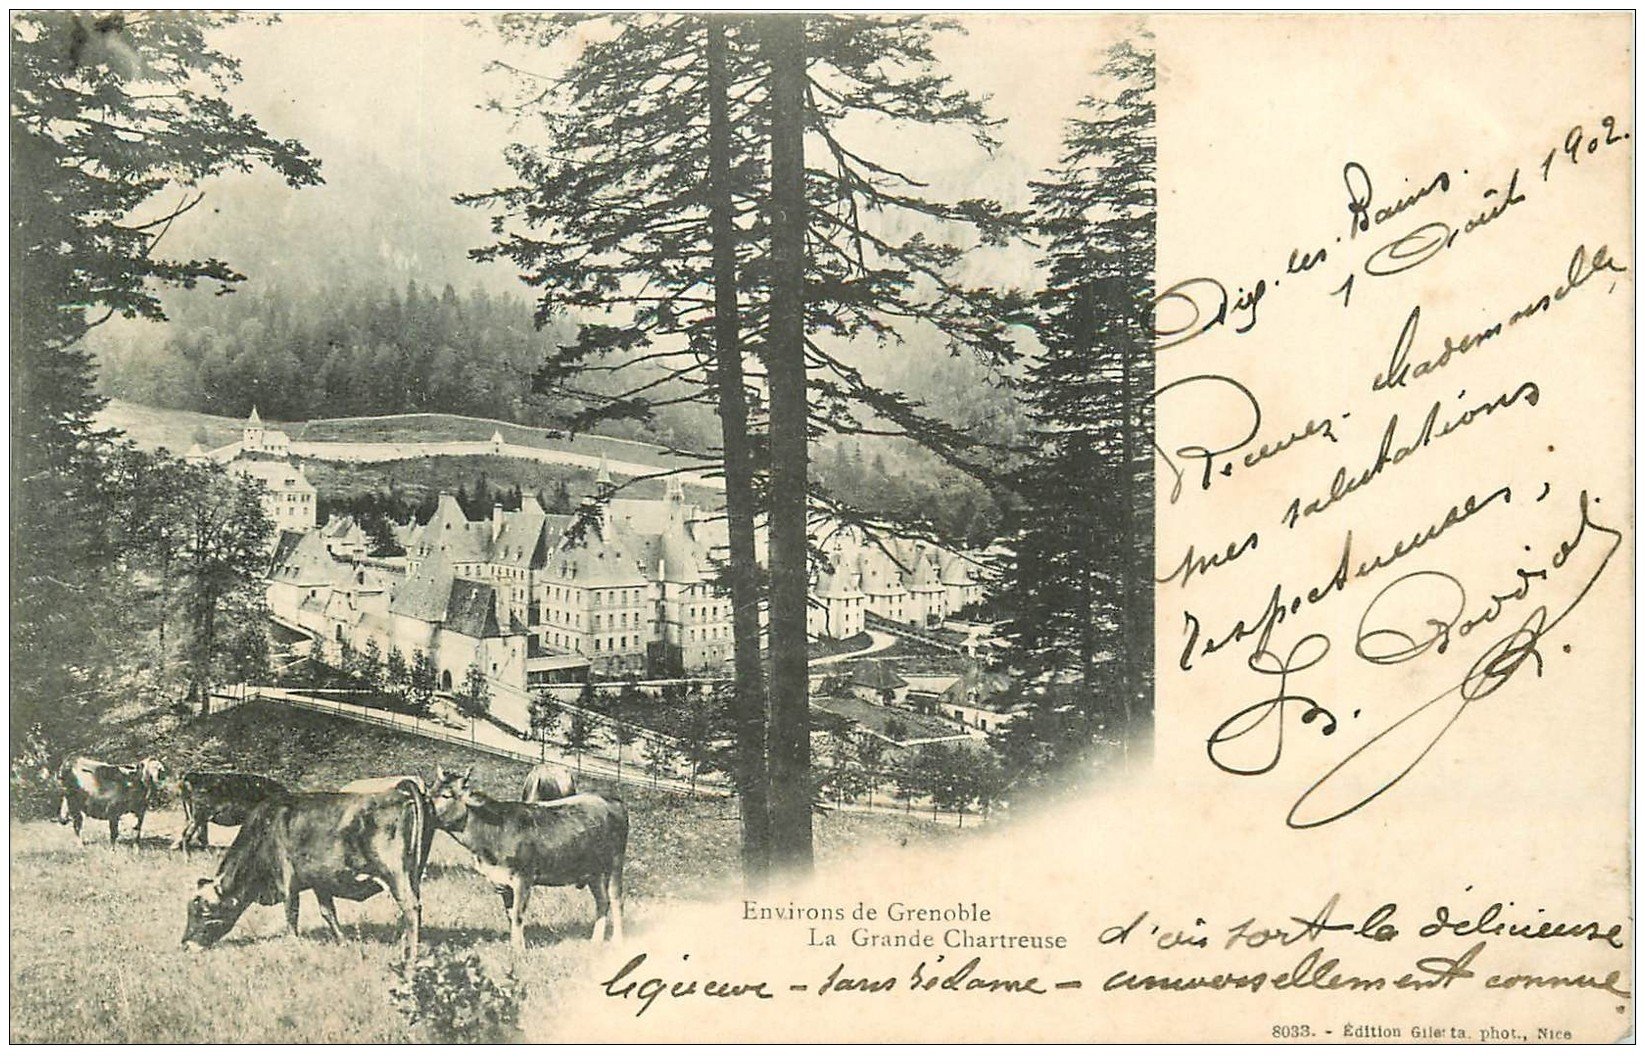 Aix-les-Bains.
1 Août 1902.
Recevez Mademoiselle,
mes salutations
respectueuses,
Environs de Grenoble
La Grande Chartreuse d'où sort la délicieuse
liqueur - sans réclame - universellement connue.
8033. - Édition Giletta, phot., Nice